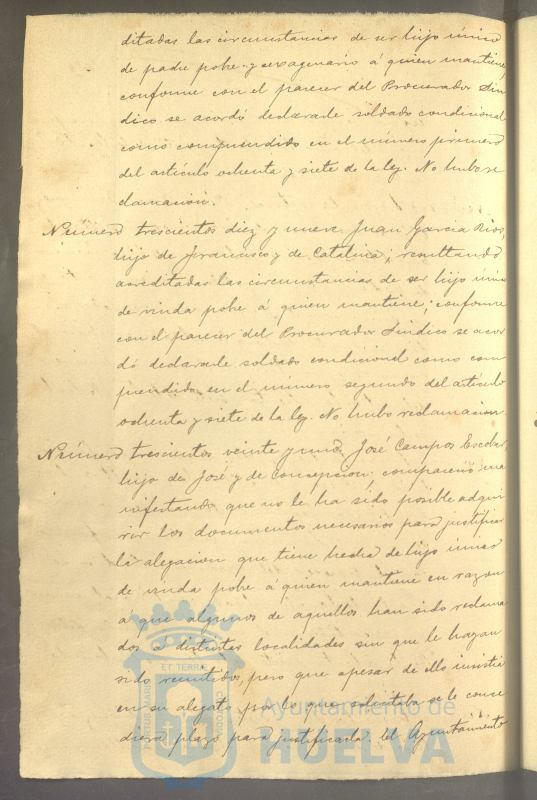 ditadas las circunstancias de ser hijo único
de padre pobre y sexagenario á quien mantiene,
conforme con el parecer del Procurador Sín
dico se acordó declararle soldado condicional
como comprendido en el número primero
del artículo ochenta y siete de la ley. No hubo re
clamación.
Número trescientos diez y nueve Juan García Rios,
hijo de Francisco y de Catalina, resultando
acreditadas las circunstancias de ser hijo único
de viuda pobre á quien mantiene; conforme
con el parecer del Procurador Síndico se acor
dó declararle soldado condicional como com
prendido en el número segundo del artículo
ochenta y siete de la ley. No hubo reclamación.
Número trescientos veinte y uno. José Campos Escobar,
hijo de José y de Concepcion: compareció ma
nifestando que no le ha sido posible adqui
rir los documentos necesarios para justificar
la alegacion que tiene hecha de hijo único
de viuda pobre á quien mantiene en razon
á que algunos de aquellos han sido reclama
dos a distintas localidades sin que le hayan
sido remitidos, pero que apesar de ello insistia
en su alegato por lo que solicitaba se le conce
diera plazo para justificarla. El Ayuntamiento
ET TERRÆ
Ayuntamiento de
HUELVA